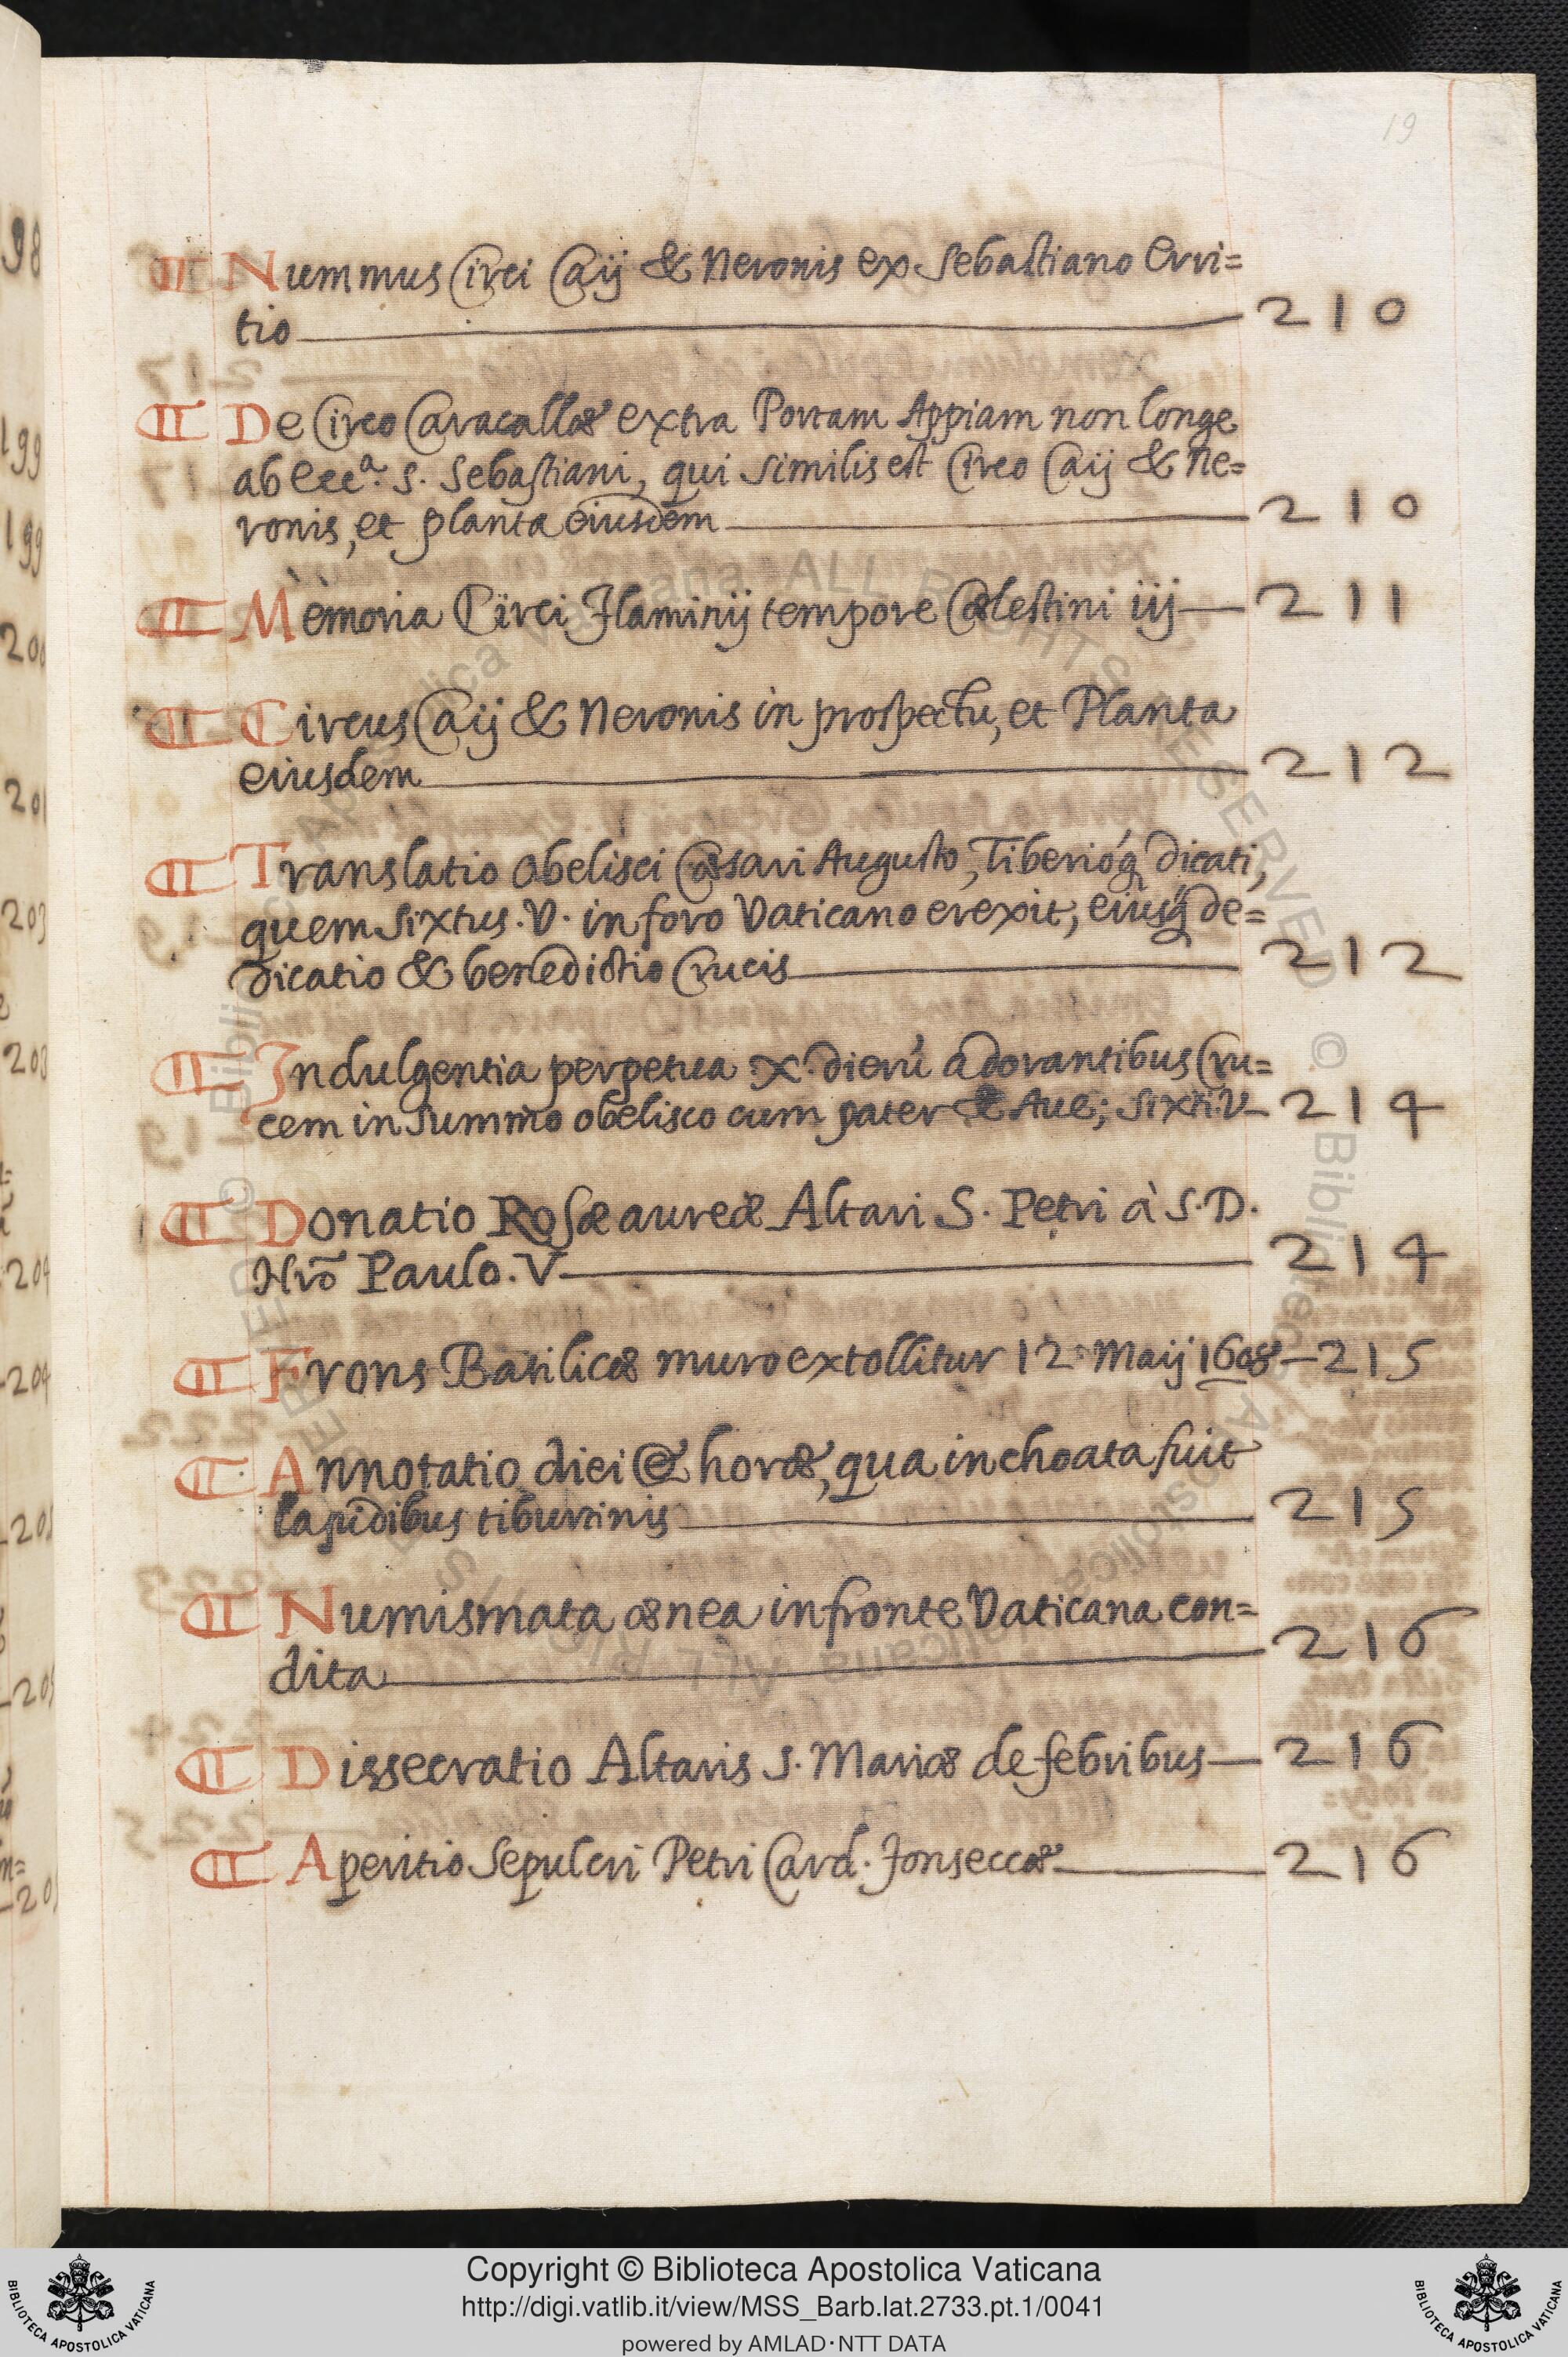 19
¶ Nummus Circi Caij & Neronis ex Sebastiano Erri=
tio 210
¶ De Circo Caracallæ extra Portam Appiam non longe
ab Eccᵃ. S. Sebastiani, qui similis est Circo Caij & Ne=
ronis, et planta eiusdem 210
¶ Memoria Circi Flaminij tempore Cælestini iij 211
¶ Circus Caij & Neronis in prospectu, et Planta
eiusdem 212
¶ Translatio obelisci Cæsari Augusto, Tiberióq dicati,
quem Sixtus .V. in foro Vaticano erexit, eiusq́ de=
dicatio & benedictio Crucis 212
¶ Indulgentia perpetua .X. dierū adorantibus Cru=
cem in summo obelisco cum pater & Aue; Sixti .V. 214
¶ Donatio Rosæ aureæ Altari S. Petri à S. D.
Nrō Paulo. V 214
¶ Frons Basilicæ muro extollitur 12. Maij 1608 215
¶ Annotatio diei & horæ, qua inchoata fuit
lapidibus tiburtinis 215
¶ Numismata ænea in fronte Vaticana con=
dita 216
¶ Dissecratio Altaris S. Mariæ de febribus 216
¶ Aperitio Sepulcri Petri Card. Fonseccæ 216
Copyright © Biblioteca Apostolica Vaticana
http://digi.vatlib.it/view/MSS_Barb.lat.2733.pt.1/0041
powered by AMLAD·NTT DATA
BIBLIOTECA APOSTOLICA VATICANA
BIBLIOTECA APOSTOLICA VATICANA